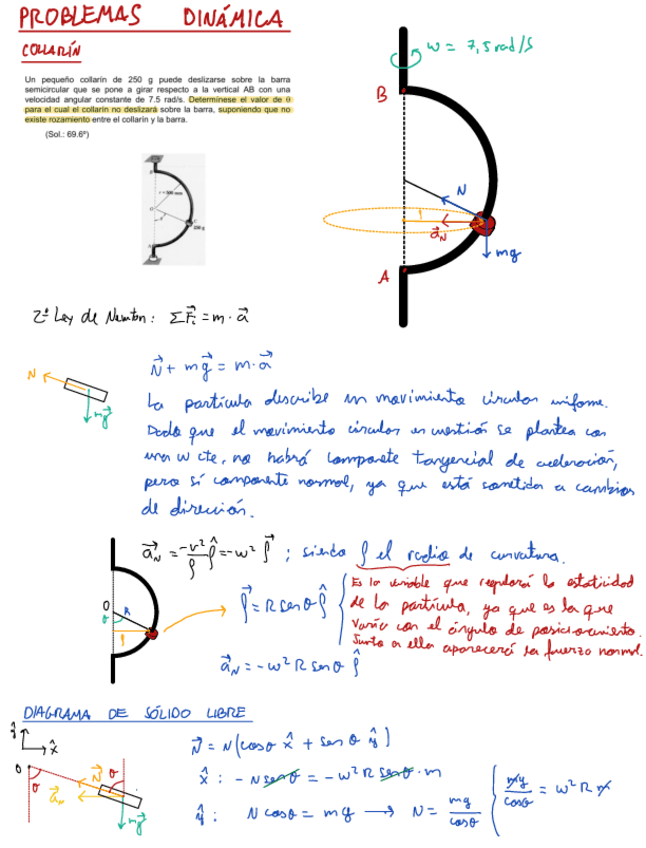 PROBLEMAS DINÁMICA
COLLARÍN
Un pequeño collarín de 250 g puede deslizarse sobre la barra
semicircular que se pone a girar respecto a la vertical AB con una
velocidad angular constante de 7.5 rad/s. Determínese el valor de θ
para el cual el collarín no deslizará sobre la barra, suponiendo que no
existe rozamiento entre el collarín y la barra.
(Sol.: 69.6º)
w = 7,5 rad/s
B
N
a⃗N
mg
A
2ª Ley de Newton: ΣF⃗i = m · a⃗
N
mg⃗
N⃗ + mg⃗ = m · a⃗
La partícula describe un movimiento circular uniforme.
Dado que el movimiento circular en cuestión se plantea con
una w cte, no habrá componente tangencial de aceleración,
pero sí componente normal, ya que está sometida a cambios
de dirección.
a⃗N = -v²/ρ ρ̂ = -w² ρ⃗ ; siendo ρ el radio de curvatura.
O
θ
R
ρ
ρ⃗ = R sen θ ρ̂
Es la variable que regulará la estaticidad
de la partícula, ya que es la que
varía con el ángulo de posicionamiento.
Junto a ella aparecerá la fuerza normal.
a⃗N = -w² R sen θ ρ̂
DIAGRAMA DE SÓLIDO LIBRE
ŷ
x̂
O
θ
N⃗
θ
a⃗N
mg⃗
N⃗ = N (cos θ x̂ + sen θ ŷ)
x̂ : - N sen θ = - w² R sen θ · m
ŷ : N cos θ = mg → N = mg/cos θ
mg/cos θ = w² R m